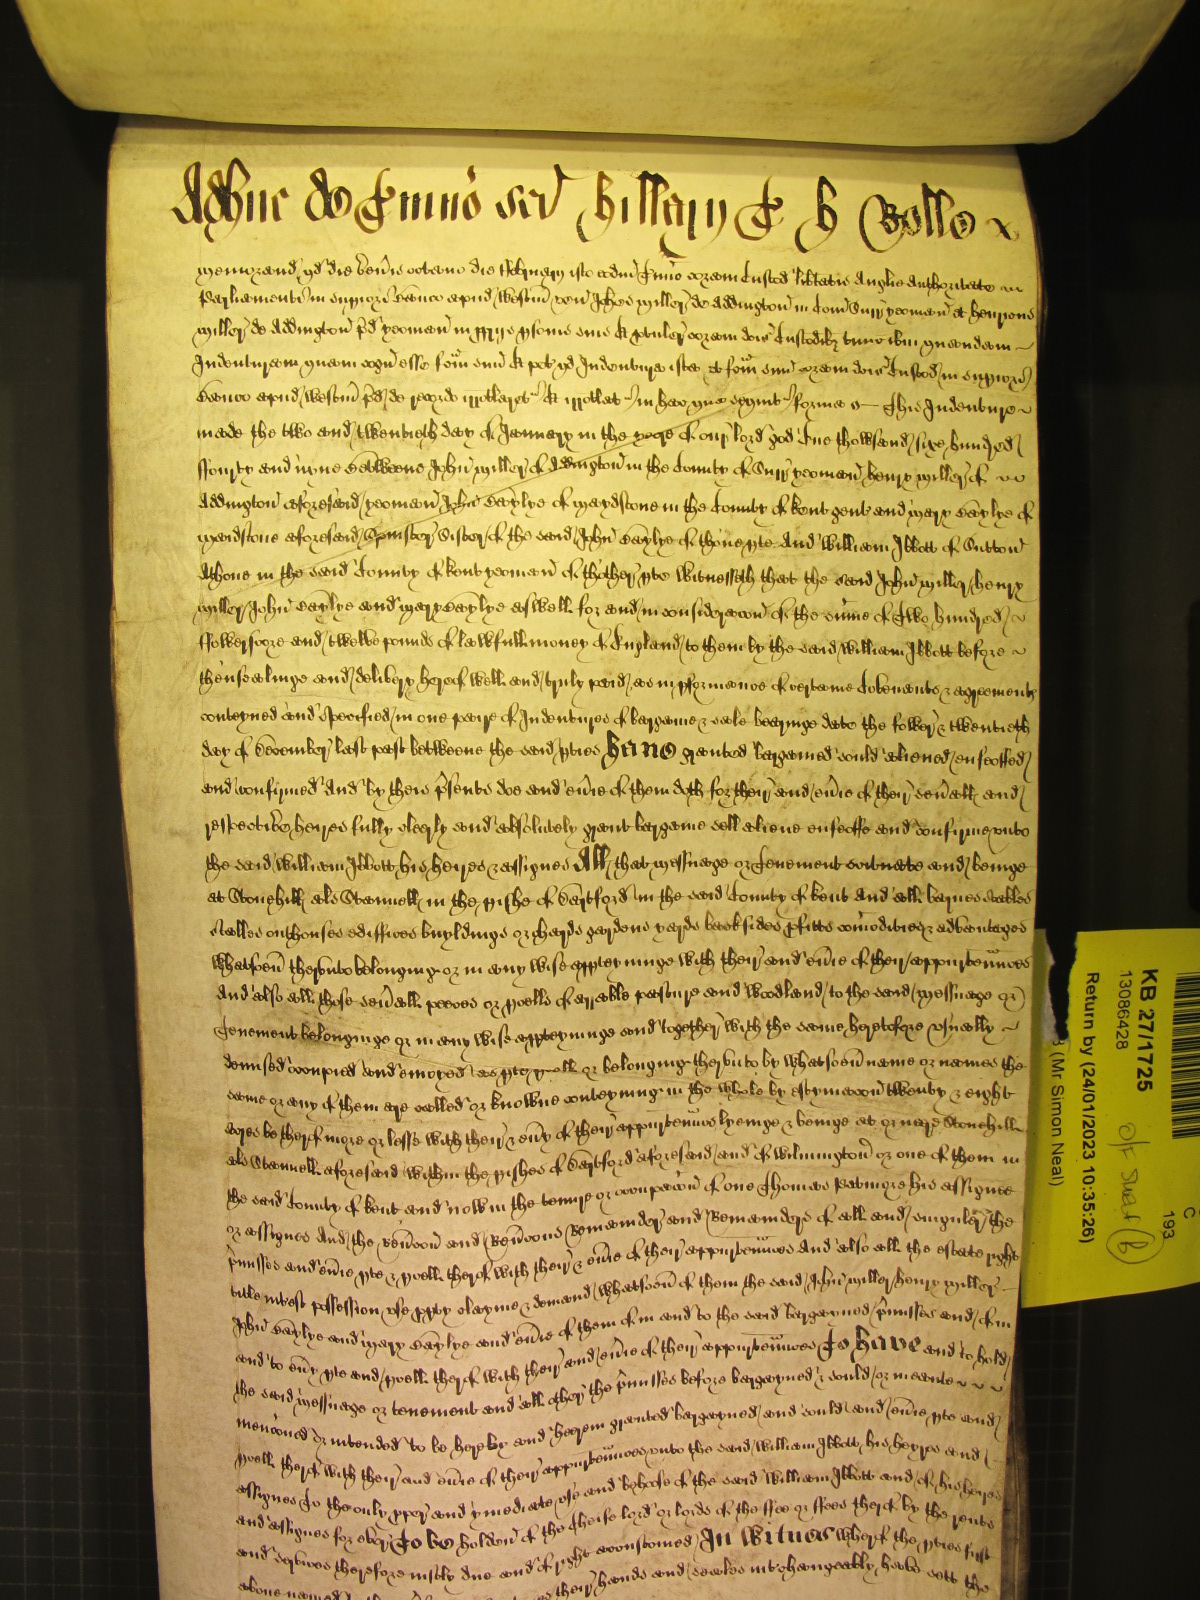 Adhuc de Termino sci Hillary T B Rolle
Memorand qd die veneris octavo die ffebruarij isto eodm Termino coram Custod libtatis Anglie authoritate
Parliamenti in superiori Banco apud Westm ven Johes Miller de Addington in Com Surr yeoman et Henricus
Miller de Addington pd yeoman in pprijs psonis suis & ptuler coram dcis Custodibz tunc ibm quandam
Indenturam quam cogn esse fcm suu & pet qd Indentura ista ut fcm suu coram dcis Custod in superiori
Banco apud Westm pd de recordo irrotlaret & irrotlat in hec que sequnt forma s This Indenture
made the two and twentieth day of January in the yeare of our lord god One thowsand sixe hundred
ffourty and nyne Betweene John Miller of Addington in the County of Surr yeoman Henry Miller of
Addington aforesaid yeoman John Baylye of Maydstone in the County of Kent gent and Mary Baylye of
Maidstone aforesaid Spinster Sister of the said John Baylye of thone pte And William Ibbott of Sutton
Athone in the said County of Kent yeoman of thother pte Witnesseth that the said John Miller Henry
Miller John Baylye and Mary Baylye aswell for and in consideracon of the sume of Two hundred
ffowerscore and twelve pounds of lawfull money of England to them by the said William Ibbott before
thensealinge and delivery hereof well and truly paid as in pformance of certaine Covenants & agreements
conteyned and specified in one paire of Indentures of bargaine & sale bearinge date the fower & twentieth
day of December last past betweene the said pties Have granted bargained sould aliened enfeoffed
and confirmed And by theis psents doe and evie of them doth for their and evie of their sevall and
respective heires fully clearly and absolutely grant bargaine sell aliene enfeoffe and confirme unto
the said William Ibbott his heires & assignes All that messuage or Tenement scituate and beinge
at Stonehill als Stannell in the pishe of Dartford in the said County of Kent And all barnes stables
stalles outhouses ediffices buyldings orchards gardens yards backsides pfitts comodities & advantages
whatsoev therunto belonginge or in any wise appteyninge with their and evie of their appurtennces
And also all those sevall peeces or pcells of arrable pasture and woodland to the said messuage or
Tenement belonginge or in any wise appteyninge and together with the same heretofore usually
demised occupied and enioyed as pte pcell or belonginge therunto by whatsoev name or names the
same or any of them are called or knowne conteyning in the whole by estymacon twenty & eight
acres be therof more or lesse with their & evy of their appurtennces lyeinge & beinge at or neare Stonehill
als Stannell aforesaid within the pishes of Dartford aforesaid and of Wilmington or one of them in
the said County of Kent and now in the tenure or occupacon of one Thomas Patmore his assignee
or assignes And the Revercon and Revercons Remainder and Remainders of all and singuler the
pmisses and evie pte & pcell therof with their & evie of their appurtennces And also all the estate right
title intest possession use ppty clayme & demand whatsoev of them the said John Miller Henry Miller
John Baylye and Mary Baylye and evie of them of in and to the said bargayned pmisses and of in
and to evy pte and pcell therof with their and evie of their appurtennces To have and to hold
the said messuage or tenement and all other the pmisses before bargayned & sould or meante
menconed or intended to be hereby and herein granted bargayned and sould and evie pte and
pcell therof with their and evie of their appurtennces unto the said William Ibbott his heyres and
assignes To the only pper and ymediate use and behoofe of the said William Ibbott and of his heires
and assignes for ever To be holden of the Cheife lord or lords of the ffee or ffees therof by the rents
and services therefore iustly due and of right accustomed In Witnes wherof the pties first
their hands and seales interchangeably have sett the
above named
KB 27/1725
13086428
Return by (24/01/2023 10:35:26)
(Mr Simon Neal)
193
C